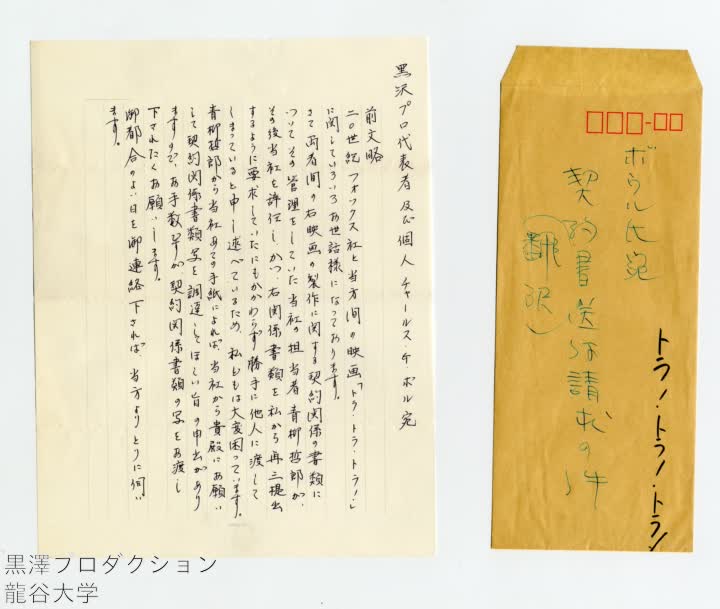 黒沢プロ代表者及び個人 チャールス・チ・ボル宛
前文略
二〇世紀フオックス社と当方間の映画「トラ・トラ・トラ!」
に関していろいろお世話様になっております。
さて両者間の右映画の製作に関する契約関係の書類に
ついてその管理をしていた当社の担当者青柳哲郎が、
その後当社を辞任し、かつ、右関係書類を私から再三提出
するように要求していたにもかかわらず勝手に他人に渡して
しまっていると申し述べているため、私どもは大変困っています。
青柳哲郎から当社あての手紙によれば、当社から貴殿にお願い
して契約関係書類写を調達してほしい旨の申出があり
ますので、お手数乍ら契約関係書類の写をお渡し
下されたくお願いします。
御都合のよい日を御連絡下されば、当方よりとりに伺い
ます。
ボウル氏宛
契約書送付請求の件
(翻訳)
トラ!トラ!トラ!
黒澤プロダクション
龍谷大学